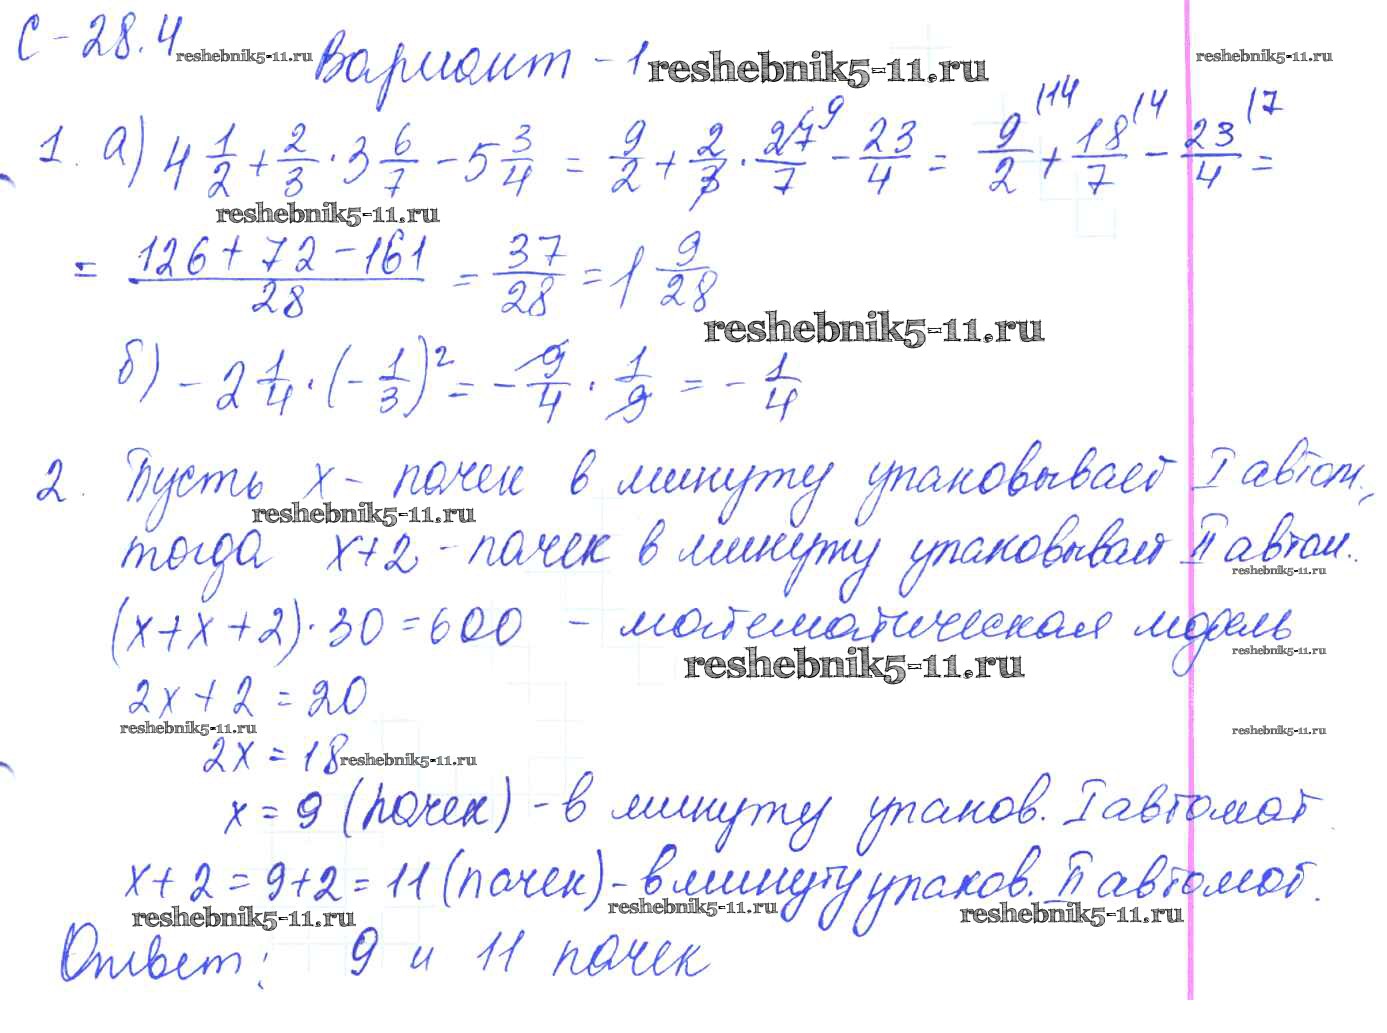 С-28.4 reshebnik5-11.ru Вариант-1 reshebnik5-11.ru reshebnik5-11.ru
1. а) 4 1/2 + 2/3 · 3 6/7 - 5 3/4 = 9/2 + 2/3 · 27/7 - 23/4 = 9/2 |14 + 18/7 |4 - 23/4 |7 =
reshebnik5-11.ru
= (126 + 72 - 161)/28 = 37/28 = 1 9/28
reshebnik5-11.ru
б) - 2 1/4 · (- 1/3)² = - 9/4 · 1/9 = - 1/4
2. Пусть x - пачек в минуту упаковывает I автом.,
reshebnik5-11.ru
тогда x+2 - пачек в минуту упаковывает II автом.
reshebnik5-11.ru
(x+x+2)·30=600 - математическая модель
reshebnik5-11.ru reshebnik5-11.ru
2x+2=20
reshebnik5-11.ru reshebnik5-11.ru
2x=18 reshebnik5-11.ru
x=9 (пачек) - в минуту упаков. I автомат.
x+2=9+2=11 (пачек) - в минуту упаков. II автомат.
reshebnik5-11.ru reshebnik5-11.ru reshebnik5-11.ru
Ответ: 9 и 11 пачек